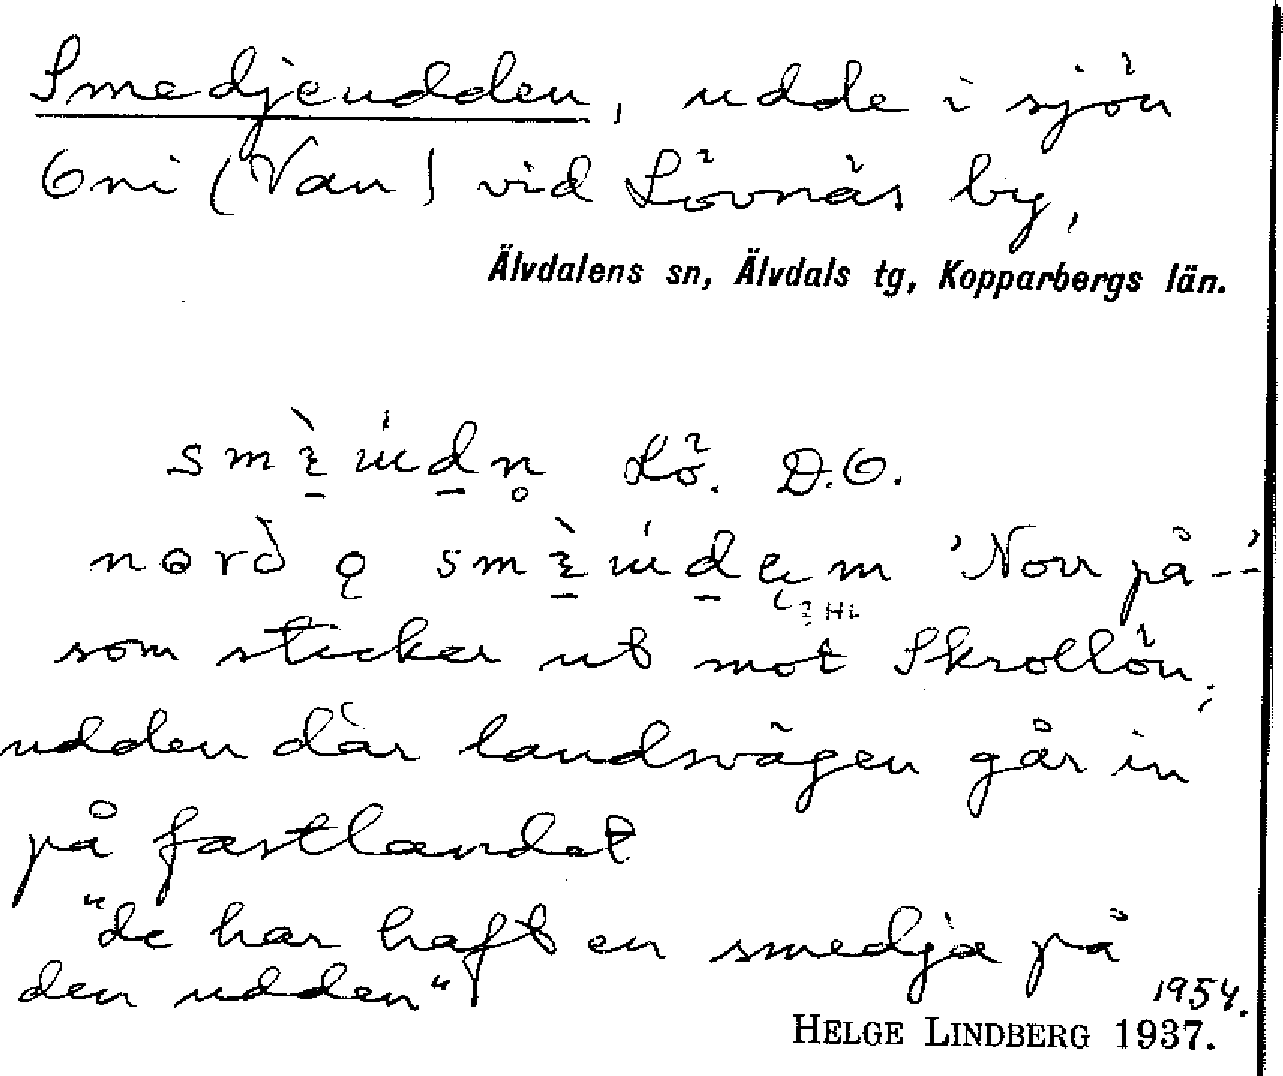 Smedjeudden, udde i sjön
Oni (Van) vid Lövnäs by,
Älvdalens sn, Älvdals tg, Kopparbergs län.
Lö. D.O.
'Norr på --'
som sticker ut mot Skrollön;
udden där landsvägen går in
på fastlandet
"de har haft en smedja på
den udden"
1954.
HELGE LINDBERG 1937.